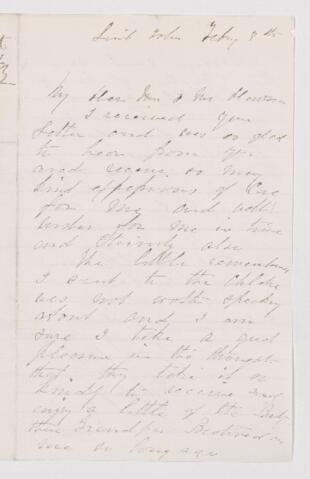 Saint John Feby 8th
My dear Mr & Mrs
I received your
letter and was so glad
to hear from you
and receive so many
kind expressions of love
for me and well
wishes for me in time
and Eternity also
The little remembrance
I sent to the Childre
was not worth speakng
about and I am
sure I take a great
pleasure in the thought
that they take it so
kindly to receive and
enjoy a little of the
their Grandpa Bestowed on
me so long ago